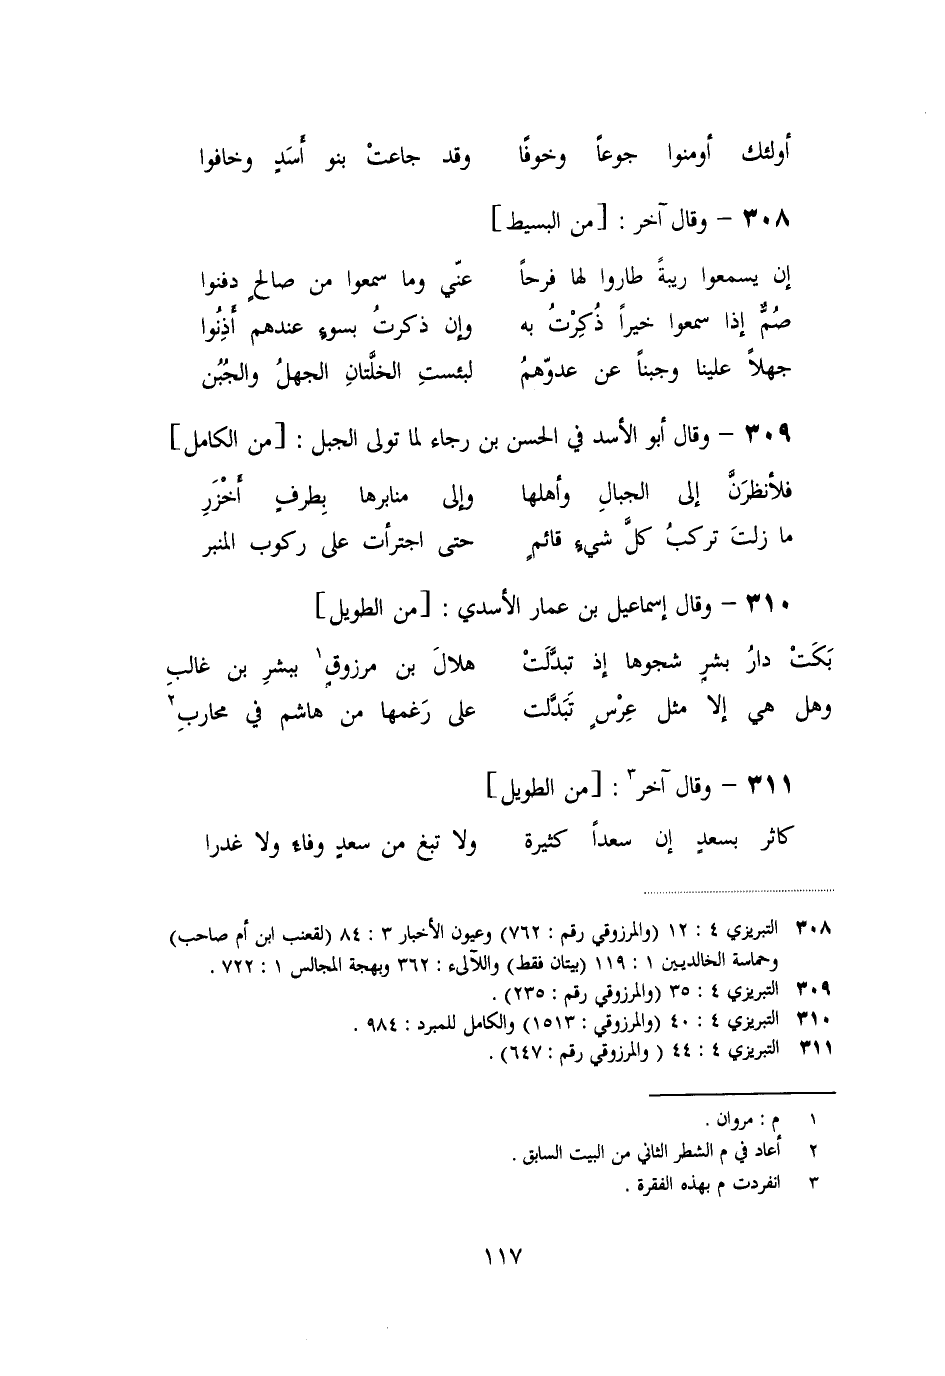 أولئك أومنوا جوعاً وخوفًا وقد جاعتْ بنو أَسَدٍ وخافوا
٣٠٨ – وقال آخر : [من البسيط]
إن يسمعوا ريبةً طاروا لها فرحاً عنّي وما سمعوا من صالحٍ دفنوا
صُمٌّ إذا سمعوا خيراً ذُكِرْتُ به وإن ذكرتُ بسوءٍ عندهم أَذِنُوا
جهلاً علينا وجبناً عن عدوّهمُ لبئستِ الخلَّتانِ الجهلُ والجُبُن
٣٠٩ – وقال أبو الأسد في الحسن بن رجاء لما تولى الجبل : [من الكامل]
فلأنظرَنَّ إلى الجبالِ وأهلها وإلى منابرها بِطرفٍ أَخْزَرِ
ما زلتَ تركبُ كلَّ شيءٍ قائمٍ حتى اجترأت على ركوب المنبر
٣١٠ – وقال إسماعيل بن عمار الأسدي : [من الطويل]
بَكَتْ دارُ بشرٍ شجوها إذ تبدَّلَتْ هلالَ بن مرزوقٍ١ ببشرِ بن غالبِ
وهل هي إلا مثل عِرْسٍ تَبَدَّلت على رَغمها من هاشم في محاربِ٢
٣١١ – وقال آخر٣ : [من الطويل]
كاثر بسعدٍ إن سعداً كثيرة ولا تبغ من سعدٍ وفاء ولا غدرا
٣٠٨ التبريزي ٤ : ١٢ (والمرزوقي رقم : ٧٦٢) وعيون الأخبار ٣ : ٨٤ (لقعنب ابن أم صاحب)
وحماسة الخالديين ١ : ١١٩ (بيتان فقط) واللآلىء : ٣٦٢ وبهجة المجالس ١ : ٧٢٢ .
٣٠٩ التبريزي ٤ : ٣٥ (والمرزوقي رقم : ٢٣٥) .
٣١٠ التبريزي ٤ : ٤٠ (والمرزوقي : ١٥١٣) والكامل للمبرد : ٩٨٤ .
٣١١ التبريزي ٤ : ٤٤ ( والمرزوقي رقم : ٦٤٧) .
١ م : مروان .
٢ أعاد في م الشطر الثاني من البيت السابق .
٣ انفردت م بهذه الفقرة .
١١٧